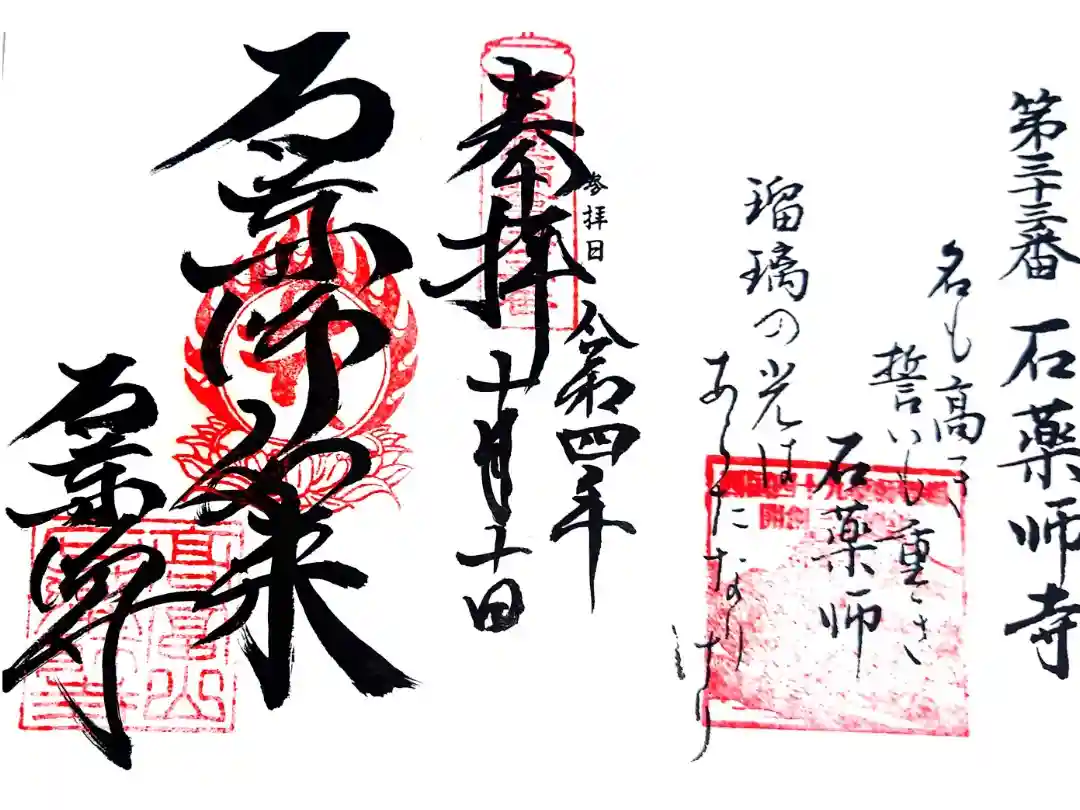 第三十三番 石薬師寺
名も高き
誓いも重き
石薬師
瑠璃の光は
あらたなり
けり
奉拝
参拝日
令和四年
十月十日
石薬師如来
石薬師寺
高富山